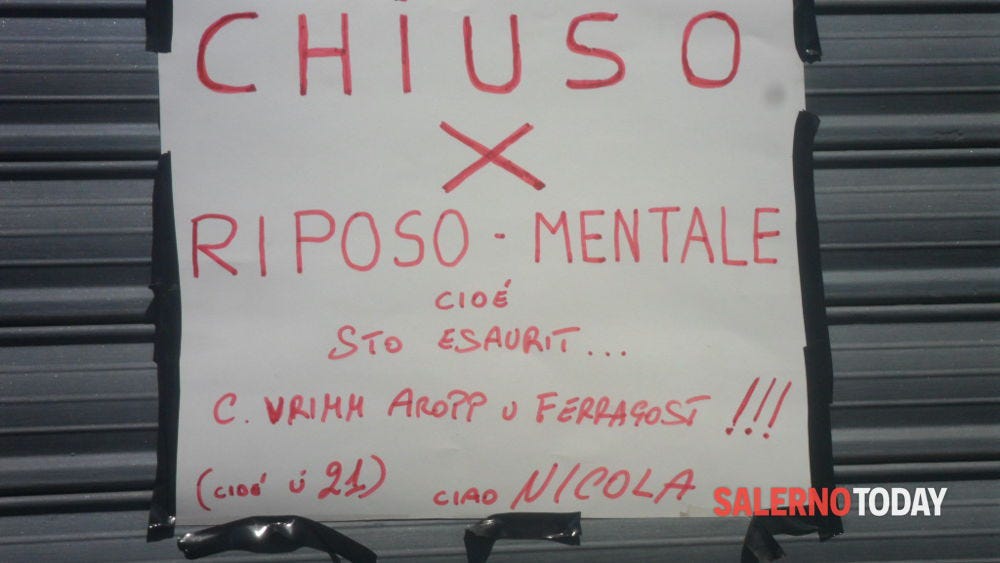 CHIUSO
X
RIPOSO - MENTALE
CIOÉ
STO ESAURIT...
C. VRIMM AROPP U FERRAGOST !!!
(CIOÉ Ú 21) CIAO NICOLA
SALERNOTODAY